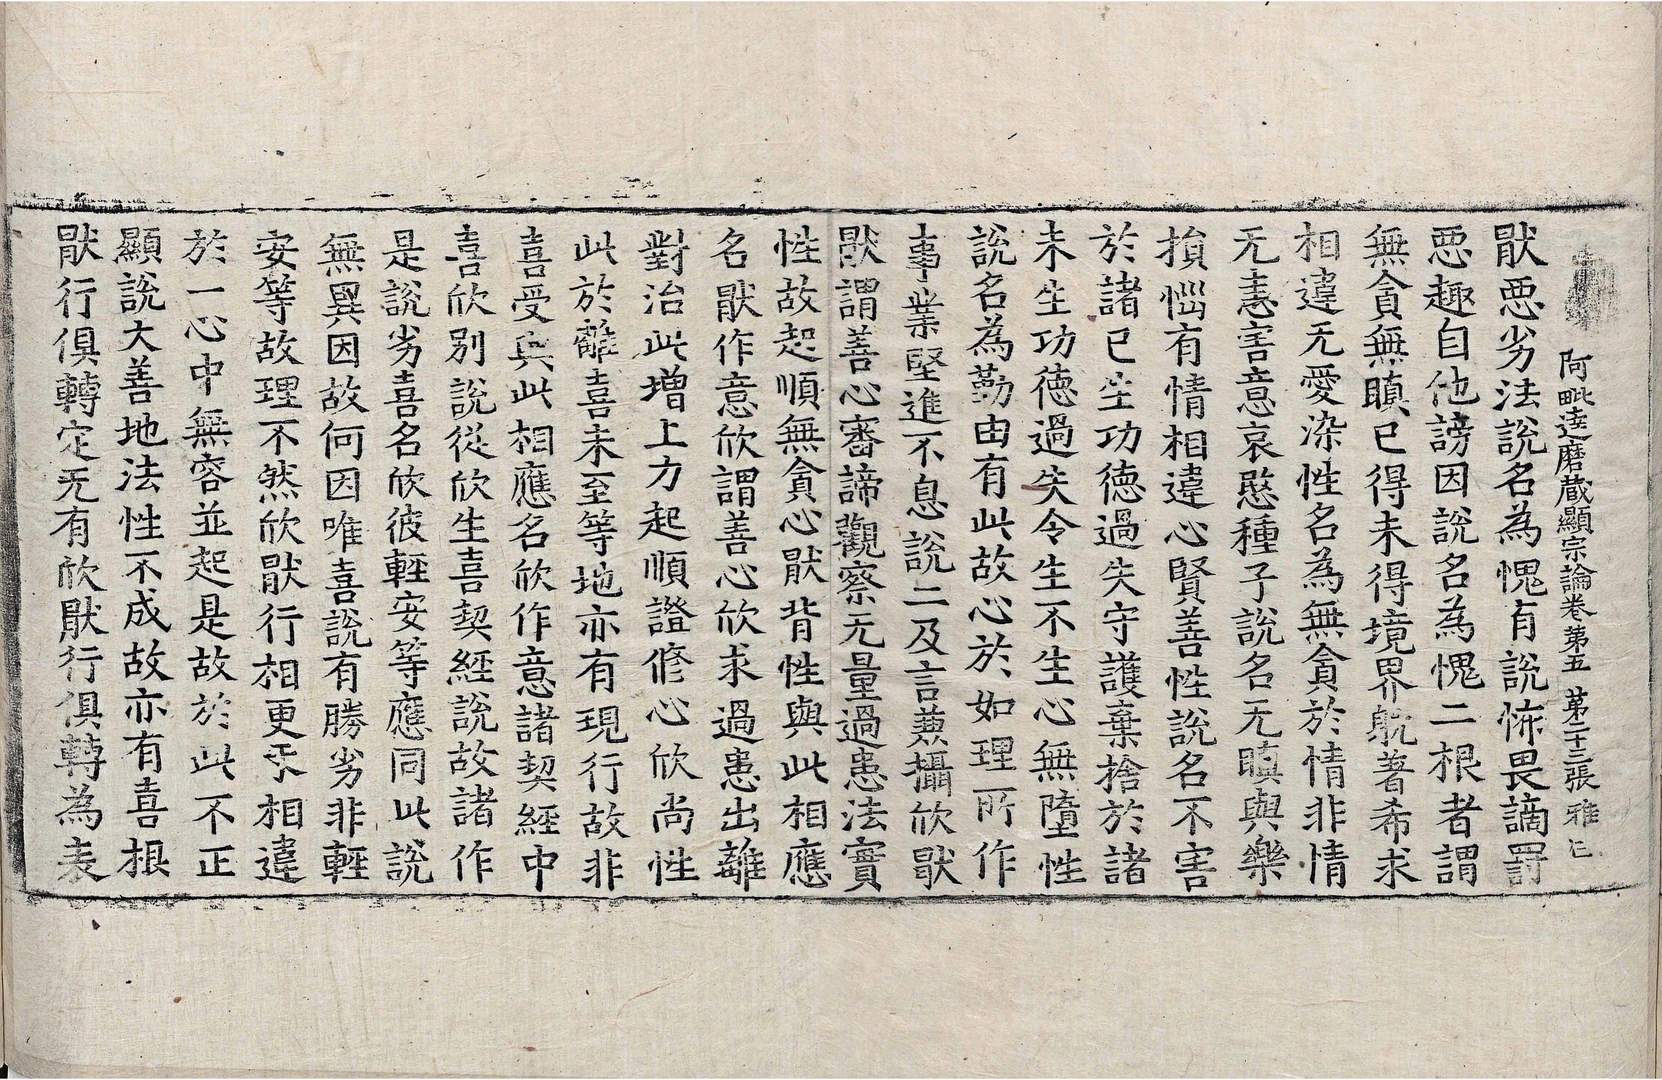 阿毗達磨藏顯宗論卷第五 第二十三張 雅
猒惡劣法說名為愧有說怖畏謫罰
惡趣自他謗因說名為愧二根者謂
無貪無瞋已得未得境界躭著希求
相違无愛染性名為無貪於情非情
无恚害意哀愍種子說名无瞋與樂
損惱有情相違心賢善性說名不害
於諸已生功德過失守護棄捨於諸
未生功德過失令生不生心無墮性
說名為勤由有此故心於如理所作
事業堅進不息說二及言兼攝欣猒
猒謂善心審諦觀察无量過患法實
性故起順無貪心猒背性與此相應
名猒作意欣謂善心欣求過患出離
對治此增上力起順證修心欣尚性
此於離喜未至等地亦有現行故非
喜受與此相應名欣作意諸契經中
喜欣別說從欣生喜契經說故諸作
是說劣喜名欣彼輕安等應同此說
無異因故何因唯喜說有勝劣非輕
安等故理不然欣猒行相更互相違
於一心中無容並起是故於此不正
顯說大善地法性不成故亦有喜根
猒行俱轉定无有欣猒行俱轉為表